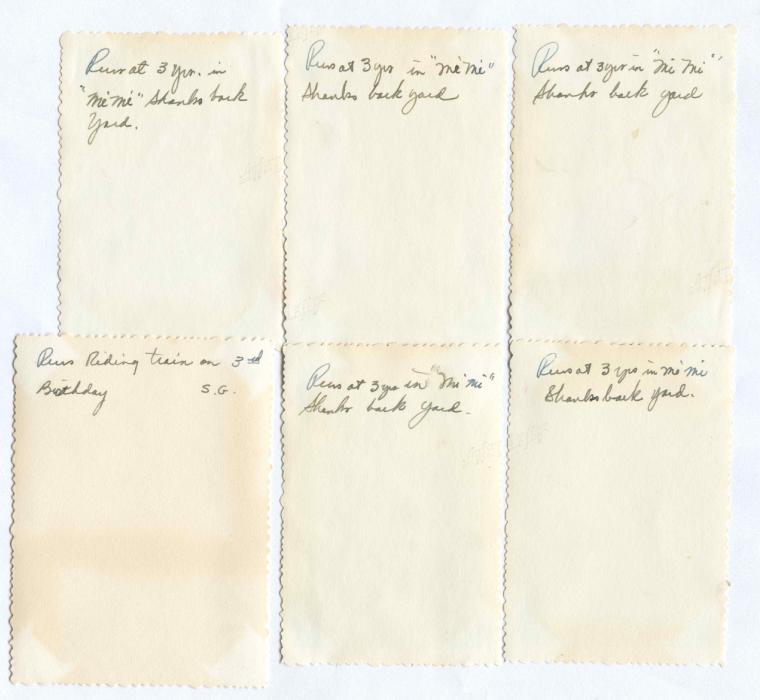 Russ at 3 yrs. in
"Mi Mi" Shanks back
Yard.
Russ at 3 yrs in "Mi Mi"
Shanks back yard
Russ at 3 yrs in "Mi Mi"
Shanks back yard
Russ Riding train on 3rd
Birthday S.G.
Russ at 3 yrs in "Mi Mi"
Shanks back yard.
Russ at 3 yrs in Mi Mi
Shanks back yard.